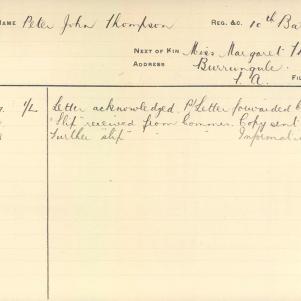 NAME Peter John Thompson REG. &C. 10th Ba
NEXT OF KIN Miss Margaret Th
ADDRESS Burrungule
S.A. FIL
1/2 Letter acknowledged. P/Letter forwarded
"Slip" received from Commer. Copy sent
Further "slip" " " Informat